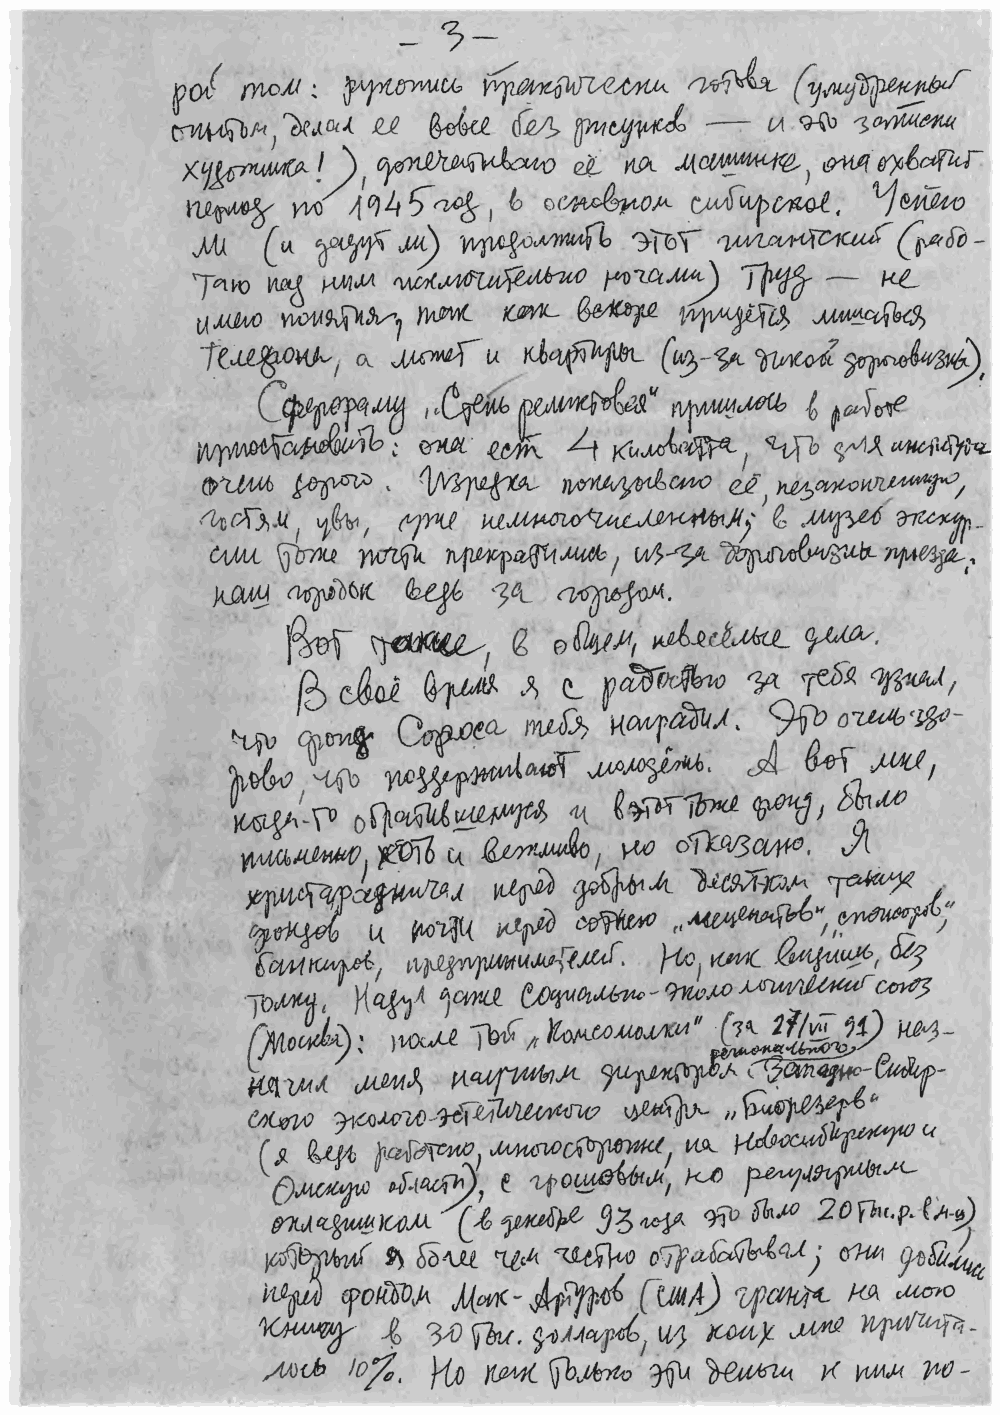 – 3 –
рой том: рукопись практически готова (умудренный
опытом, делал ее вовсе без рисунков — и это записки
художника!), допечатываю её на машинке, она охватит
период по 1945 год, в основном сибирское. Успею
ли (и дадут ли) продолжить этот гигантский (рабо-
таю над ним исключительно ночами) труд — не
имею понятия, так как вскоре придётся лишаться
телефона, а может и квартиры (из-за дикой дороговизны).
Сферораму „Степь реликтовая“ пришлось в работе
приостановить: она ест 4 киловатта, что для института
очень дорого. Изредка показываю её, незаконченную,
гостям, увы, уже немногочисленным; в музей экскур-
сии тоже почти прекратились, из-за дороговизны проезда:
наш городок ведь за городом.
Вот такие, в общем, невесёлые дела.
В своё время я с радостью за тебя узнал,
что фонд Сороса тебя наградил. Это очень здо-
рово, что поддерживают молодёжь. А вот мне,
когда-то обратившемуся и в этот тоже фонд, было
письменно, хоть и вежливо, но отказано. Я
христарадничал перед добрым десятком таких
фондов и почти перед сотнею „меценатов“, „спонсоров“,
банкиров, предпринимателей. Но, как видишь, без
толку. Надул даже Социально-экологический союз
(Москва): после той „Комсомолки“ (за 27/VII 91) наз-
начил меня научным директором регионального Западно-Сибир-
ского эколого-эстетического центра „Биорезерв“
(я ведь работаю, многосторонне, на Новосибирскую и
Омскую области), с грошовым, но регулярным
окладишком (в декабре 93 года это было 20 тыс. р. в м-ц),
который я более чем честно отрабатывал; они добились
перед фондом Мак-Артуров (США) гранта на мою
книгу в 30 тыс. долларов, из коих мне причита-
лось 10%. Но как только эти деньги к ним по-